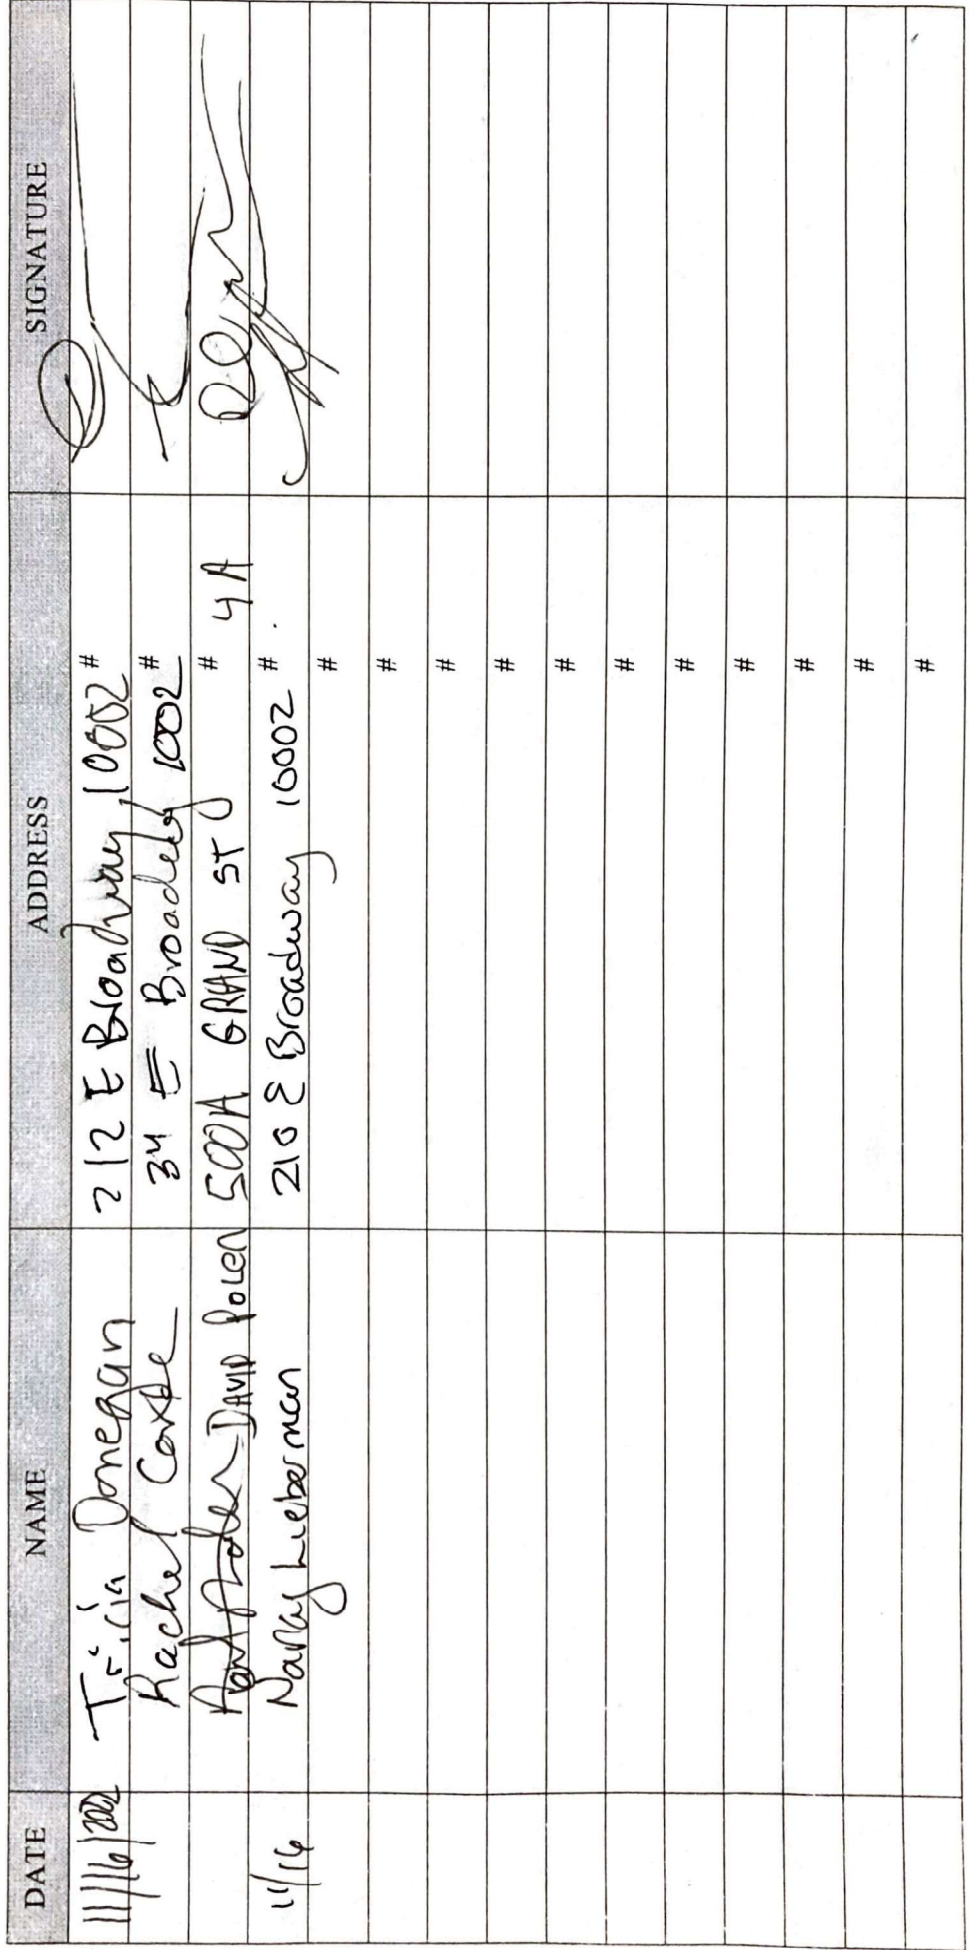 DATE NAME ADDRESS SIGNATURE
11/16/2022 Tricia Donegan 212 E Broadway, 10002 #
Rachel 34 E Broadway 1002 #
DAVID POLEN 500A GRAND ST # 4A
11/16 Nancy Lieberman 210 E Broadway 10002 #
#
#
#
#
#
#
#
#
#
#
#